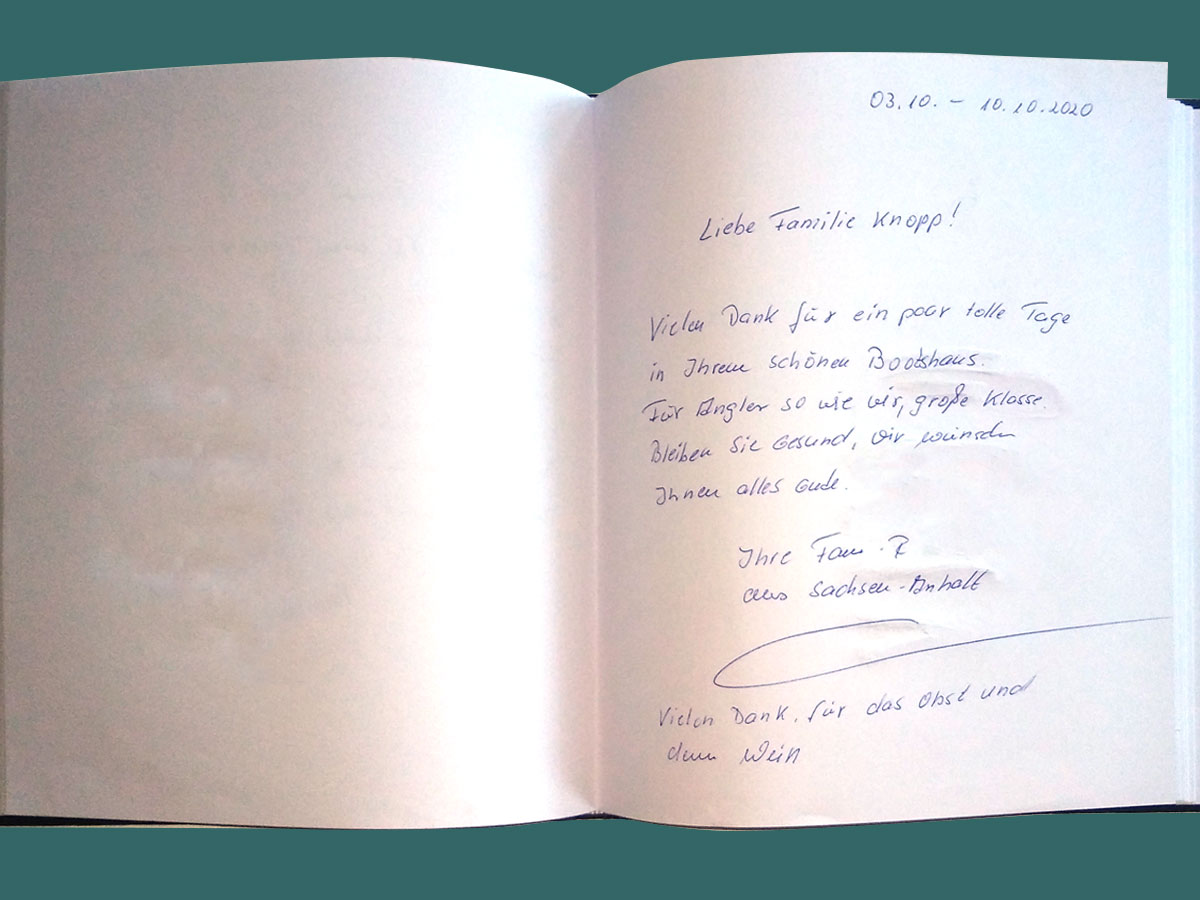 03.10. – 10.10.2020
Liebe Familie Knopp!
Vielen Dank für ein paar tolle Tage
in Ihrem schönen Bootshaus.
Für Angler so wie wir, große Klasse.
Bleiben Sie Gesund, wir wünschen
Ihnen alles Gute.
Ihre Fam. R
aus Sachsen-Anhalt
Vielen Dank, für das Obst und
dem Wein